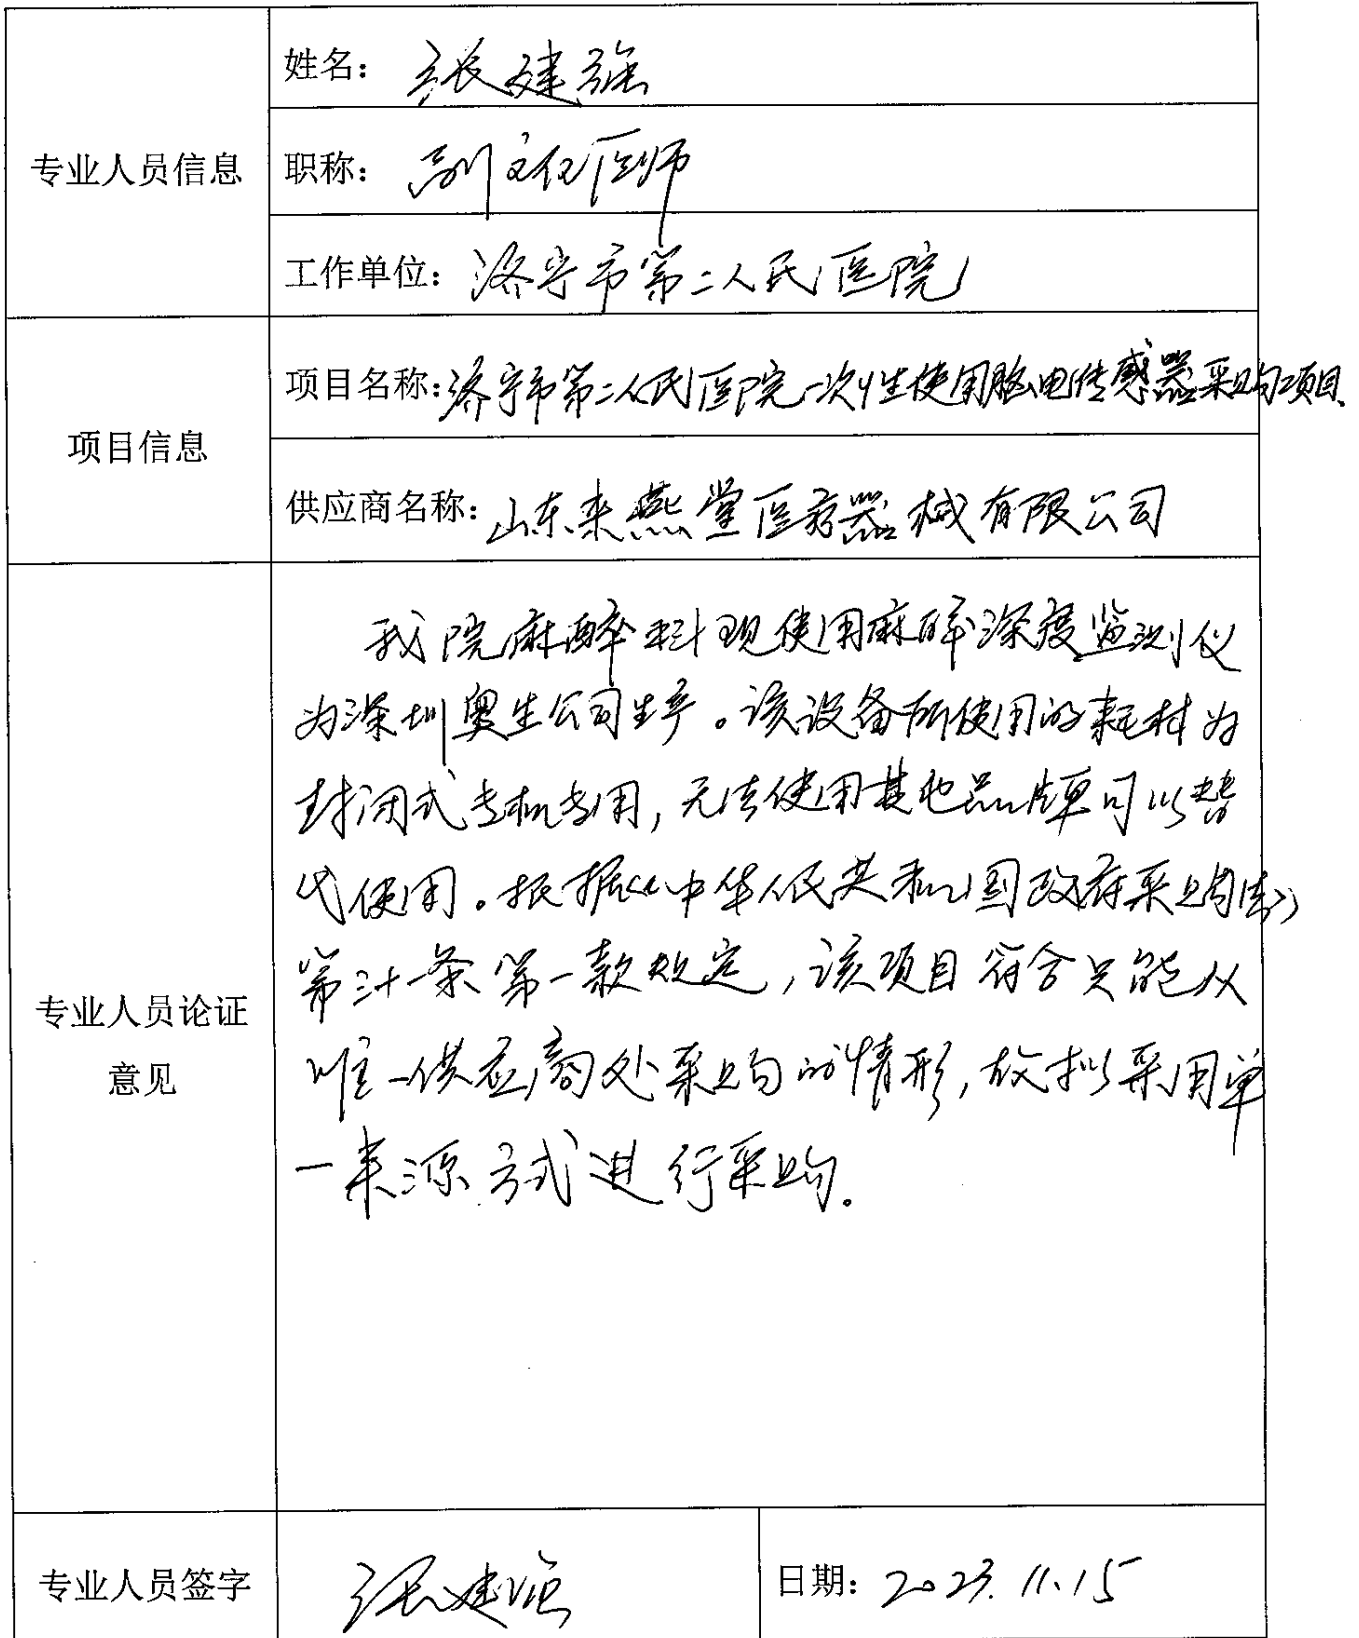 专业人员信息
姓名：张建强
职称：副主任医师
工作单位：济宁市第二人民医院
项目信息
项目名称：济宁市第二人民医院一次性使用脑电传感器采购项目
供应商名称：山东来燕堂医疗器械有限公司
专业人员论证
意见
我院麻醉科现使用麻醉深度监测仪
为深圳奥生公司生产。该设备所使用的耗材为
封闭式专机专用，无法使用其他品牌可以替
代使用。根据《中华人民共和国政府采购法》
第三十一条第一款规定，该项目符合只能从
唯一供应商处采购的情形，故拟采用单
一来源方式进行采购。
专业人员签字
张建强
日期：2023.11.15